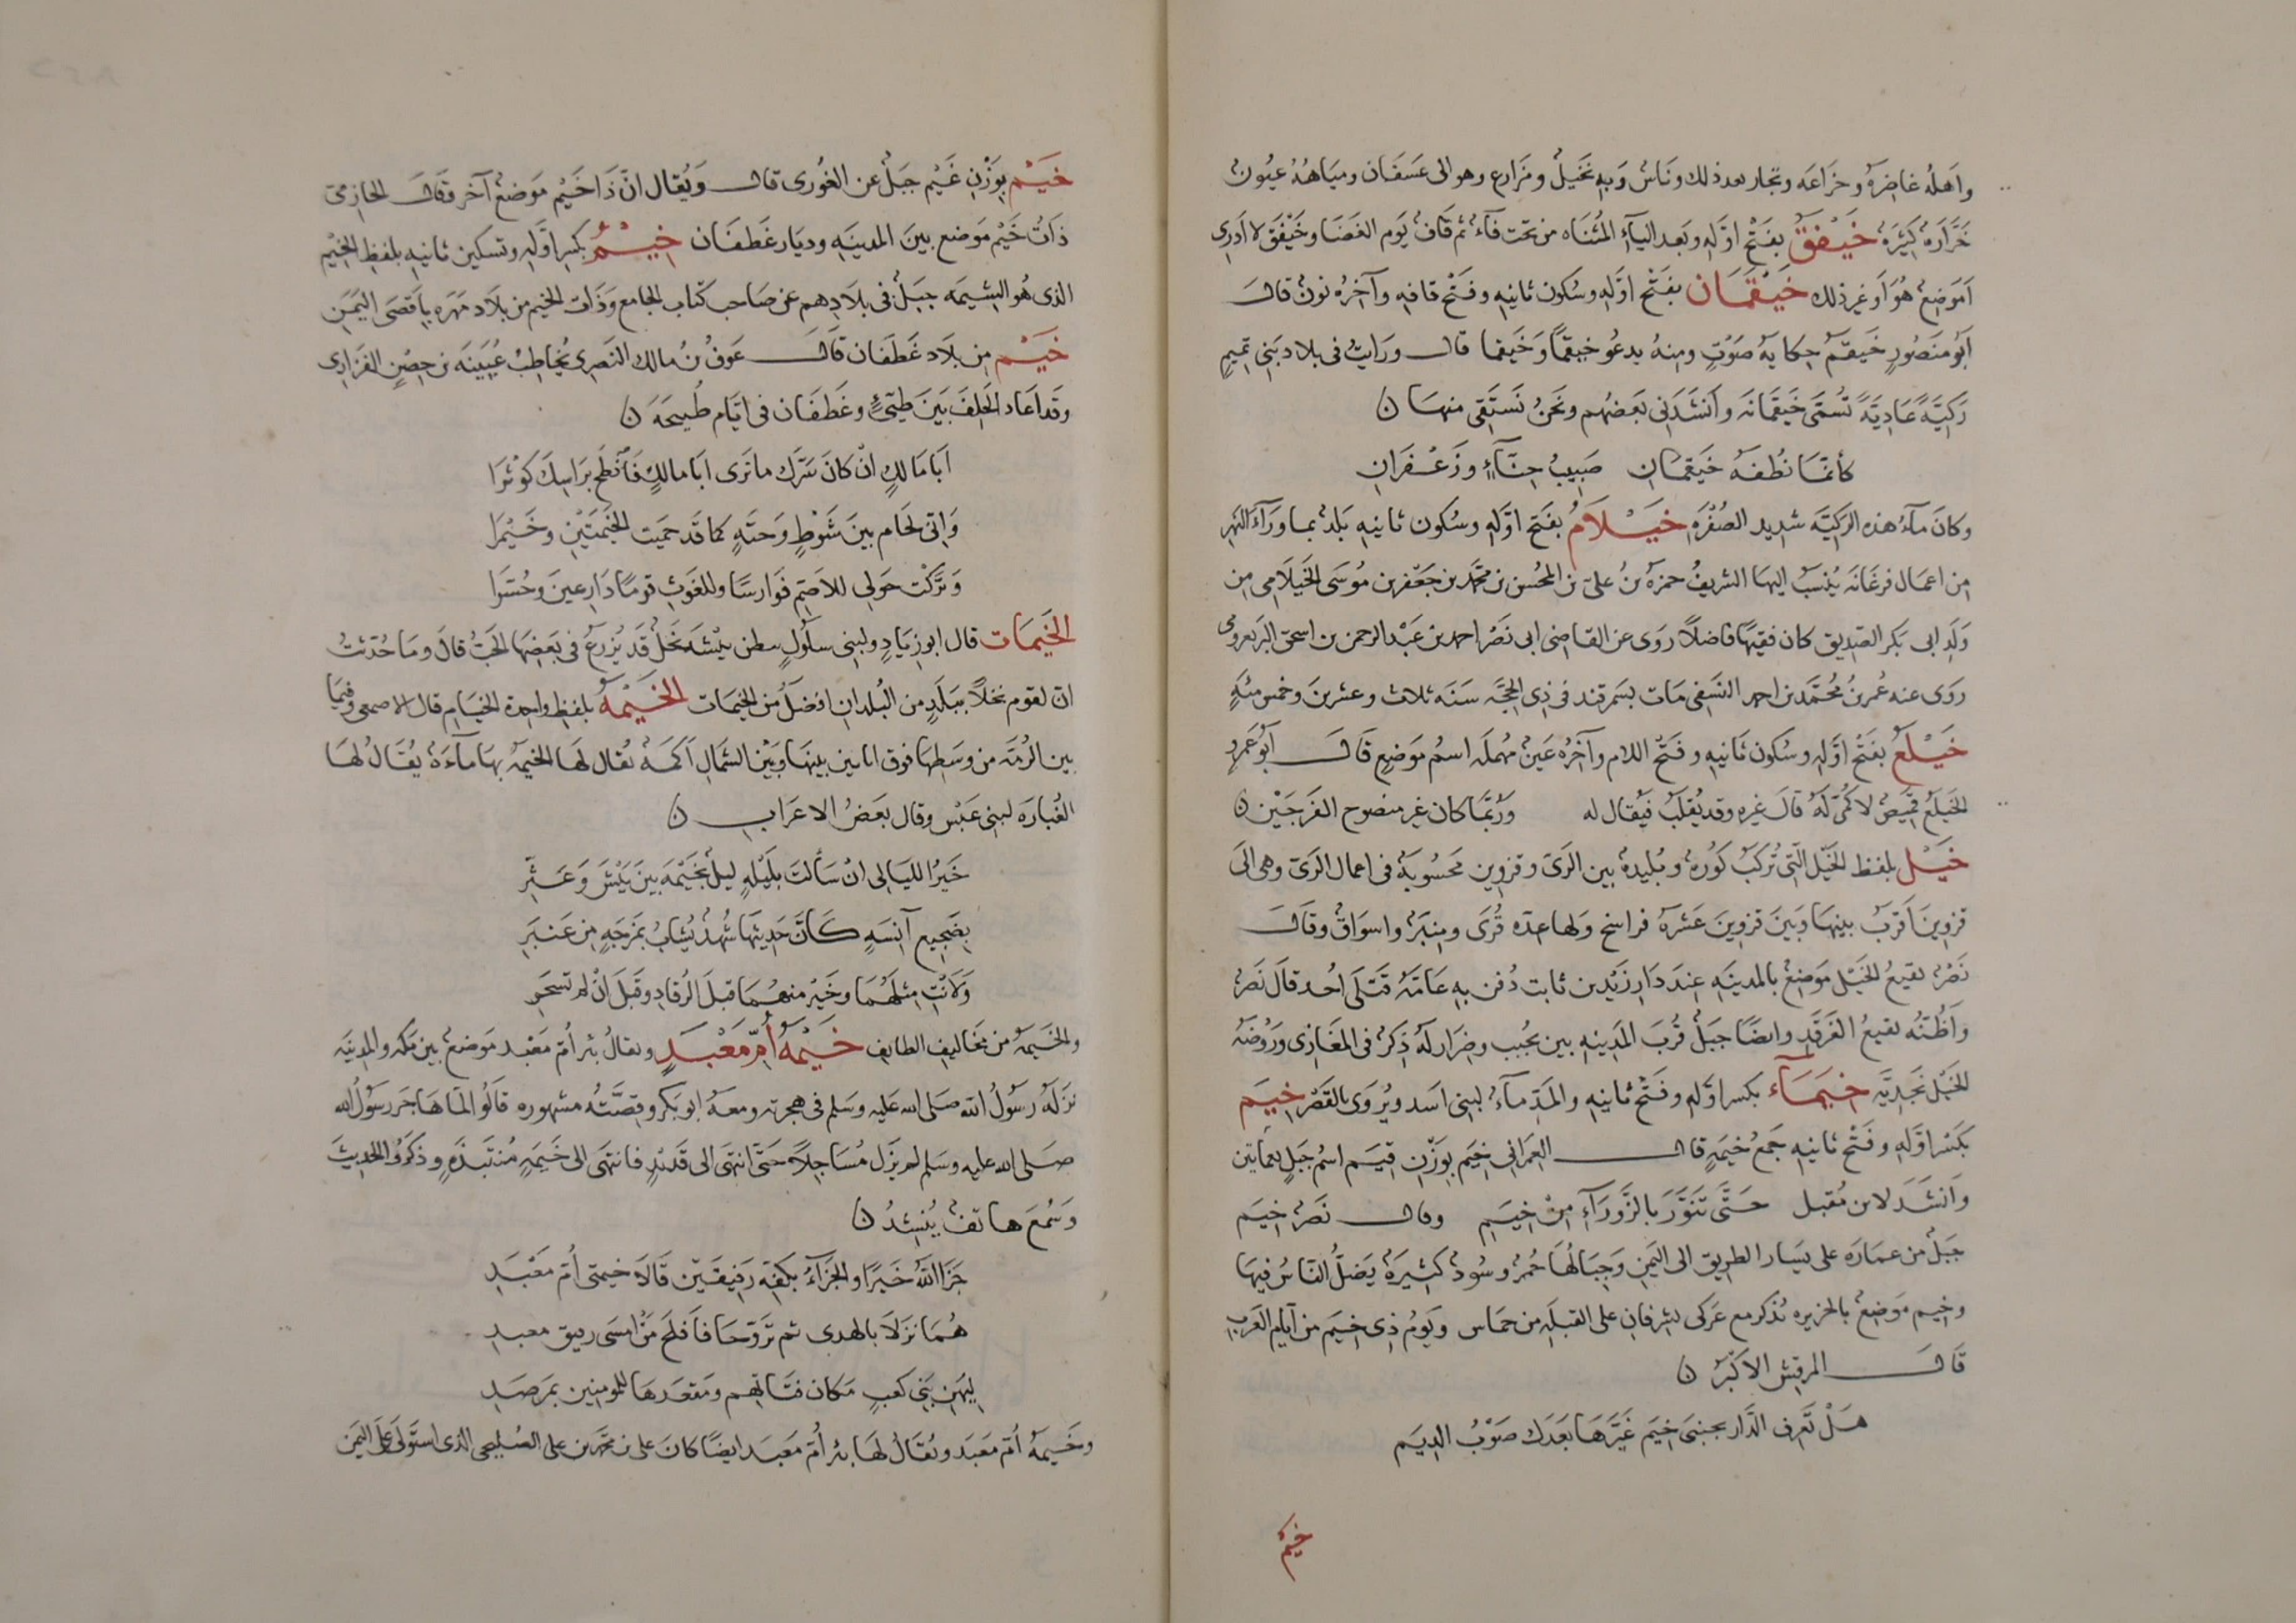 واهله غاضرة وخزاعه وتجار بعد ذلك وناس وبه نخيل ومزارع وهو الى عسفان ومياهه عيون
خرّارة كثيرة خَيْفَقٌ بفتح اوّله وبعد اليآء المثناه من تحت فآء ثم قاف يوم الغضا وخيفق لا ادرى
اموضع هو او غير ذلك خَيْقَمَان بفتح اوّله وسكون ثانيه وفتح قافه وآخره نون قال
ابو منصور خيقم حكاية صوت ومنه يدعو خيقما وخيقما قال ورايت فى بلاد بنى تميم
ركيّة عادية تسمّى خيقمانه وانشدنى بعضهم ونحن نستقى منها ن
كأنما نطفه خيقمان صبيب حنّآء وزعفران
وكان مآء هذه الركيّه شديد الصفره خَيْلَامُ بفتح اوّله وسكون ثانيه بلد بما ورآء النهر
من اعمال فرغانه ينسب اليها الشريف حمزة بن على بن المحسن بن محمد بن جعفر بن موسى الخيلامى من
ولد ابى بكر الصديق كان فقيها فاضلا روى عن القاضى ابى نصر احمد بن عبد الرحمن بن اسحق
روى عنه عمر بن محمد بن احمد النسفى مات بسمرقند فى ذى الحجّه سنه ثلاث وعشرين وخمس مئة
خَيْلَعُ بفتح اوّله وسكون ثانيه وفتح اللام وآخره عين مهملة اسم موضع قال ابو عمرو
الخيلع قميص لا كمّى له قال غيره وقد يقلب فيقال له وربّما كان غير منصوح الفرجين ن
خَيْل بلفظ الخيل التى تركب كورة وبليدة بين الرى وقزوين محسوبة فى اعمال الرى وهى الى
قزوين اقرب بينها وبين قزوين عشرة فراسخ ولها عدّة قرى ومنبر واسواق وقال
نصر بقيع الخيل موضع بالمدينه عند دار زيد بن ثابت دفن به عامّة قتلى احد قال نصر
واظنّه بقيع الغرقد وايضًا جبل قرب المدينه بين مجنب وضرار له ذكر فى المغازى وروضة
الخيل نجديّه خِيَمَآء بكسر اوّله وفتح ثانيه والمدّ مآء لبنى اسد ويروى بالقصر خِيَم
بكسر اوّله وفتح ثانيه جمع خيمة قال العمرانى خيم بوزن قيم اسم جبل بعمايتين
وانشد لابن مقبل حتّى تنوّر بالزورآء من خيم وقال نصر خيم
جبل من عمارة على يسار الطريق الى اليمن وجبالها حمر وسود كثيرة يضلّ الناس فيها
وخيم موضع بالجزيره تذكر مع عركى يشرفان على القبله من حماس ويوم ذى خيم من ايام العرب
قال المرقش الاكبر ن
هل تعرف الدار بجنبى خيم غيّرها بعدك صوب الديم
خيم
خَيْم بوزن غيم جبل عن الغورى قال ويقال انّ ذا خيم موضع آخر وقال الحازمى
ذات خيم موضع بين المدينه وديار غطفان خِيْمٌ بكسر اوّله وتسكين ثانيه بلفظ الخيم
الذى هو الشيمه جبل فى بلادهم عن صاحب كتاب الجامع وذات الخيم من بلاد مهره باقصى اليمن
خَيْم من بلاد غطفان قال عوف بن مالك النصرى يخاطب عيينه بن حصن الفزارى
وقد اعاد الحلف بين طيّئ وغطفان فى ايام طليحه ن
ابا مالك ان كان سرّك ما ترى ابا مالك فانطح براسك كوثرا
وانى لحام بين شوط وحيّة كما قد حميت الخيمتين وخيمرا
وتركت حولى للاصم فوارسا وللغوث قوما دارعين وحسّرا
الخَيمَات قال ابو زياد ولبنى سلول ببطن بيشه نخل قد يزرع فى بعضها الحبّ قال وما حدّثت
انّ لقوم نخلًا ببلد من البلدان افضل من الخيمات الخَيْمَةُ بلفظ واحدة الخيام قال الاصمعى وفيما
بين الرمّه من وسطها فوق ابانين بينها وبين الشمال اكمة يقال لها الخيمة بها مآءة يقال لها
الغبارة لبنى عبس وقال بعض الاعراب ن
خير الليالى ان سألت بليلة ليل بخيمه بين بيش وعثّر
بضجيع آنسة كانّ حديثها شهد يشاب بمزجه من عنبر
ولانت مثلهما وخير منهما قبل الرقاد وقبل ان لم تسحر
والخيمة من مخاليف الطايف خَيْمَةُ اُمّ مَعْبَدٍ ويقال بئر امّ معبد موضع بين مكه والمدينه
نزله رسول الله صلى الله عليه وسلم فى هجرته ومعه ابو بكر وقصّته مشهوره قالوا لمّا هاجر رسول الله
صلى الله عليه وسلم لم يزل مساحلًا حتى انتهى الى قديد فانتهى الى خيمة منتبذة وذكروا الحديث
وسمع هاتف ينشد ن
جزا الله خيرا والجزآء بكفّه رفيقين قالا خيمتى امّ معبد
هما نزلا بالهدى ثم تروّحا فافلح من امسى رفيق معبد
ليهن بنى كعب مكان فتاتهم ومقعدها للمومنين بمرصد
وخيمة امّ معبد ويقال لها بئر امّ معبد ايضًا كان على بن محمد بن على الصليحى الذى استولى على اليمن